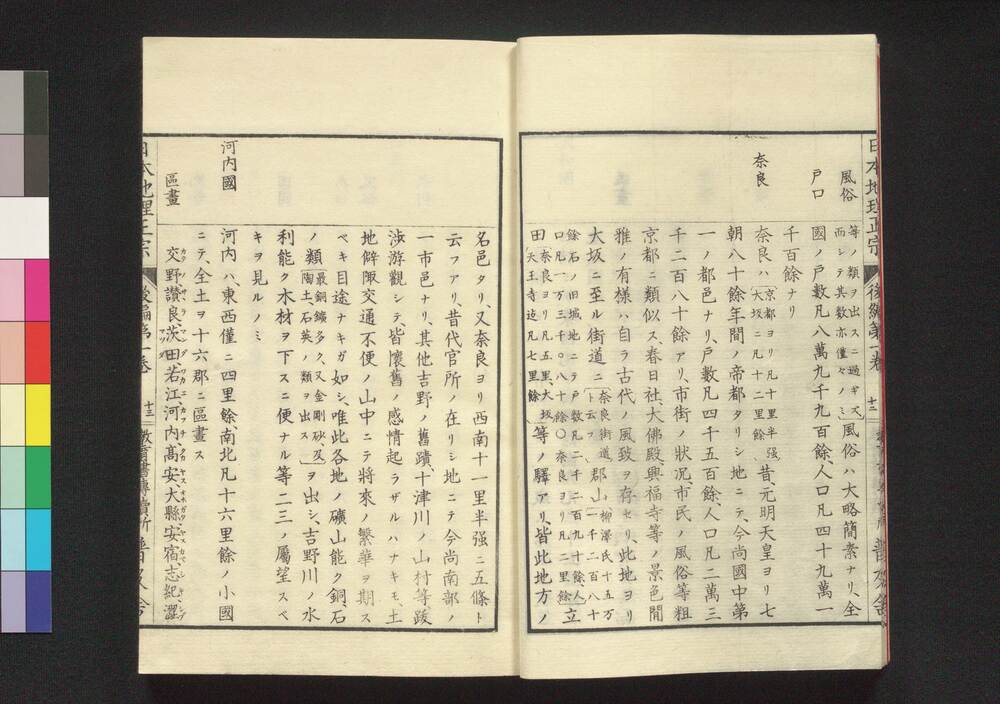 日本地理正宗
後編第一卷
十二
風俗
戸口
奈良
等ノ類ヲ出スニ過ギズ
而シテ其數亦僅々ノミ
風俗ハ大略簡素ナリ、全
國ノ戸數凡八萬九千九百餘、人口凡四十九萬一
千百餘ナリ
奈良ハ
京都ヨリ凡十里半强
大坂ニ凡十二里餘
昔、元明天皇ヨリ七
朝八十餘年間ノ帝都タリシ地ニテ、今尚國中第
一ノ都邑ナリ、戸數凡四千五百餘、人口凡二萬三
千二百八十餘アリ、市街ノ狀况、市民ノ風俗等粗
京都ニ類似ス、春日社、大佛殿、興福寺等ノ景色閒
雅ノ有様ハ自ラ古代ノ風致ヲ存セリ、此地ヨリ
大坂ニ至ル街道ニ
奈良街道
ト云フ
郡山
柳澤氏十五万
一千二百八十
餘石ノ旧城地ニテ戸數凡二千二百九十餘人
口凡一万三千〇八十餘〇奈良ヨリ凡二里餘
立
田
奈良ヨリ凡五里、大坂
天王寺迄凡七里餘
等ノ驛アリ、皆此地方ノ
名邑タリ、又奈良ヨリ西南十一里半强ニ五條ト
云フアリ、昔代官所ノ在リシ地ニテ今尚南部ノ
一市邑ナリ、其他吉野ノ舊蹟、十津川ノ山村等、跋
渉游觀シテ、皆懷舊ノ感情起ラザルハナキモ土
地僻陬交通不便ノ山中ニテ將來ノ繁華ヲ期ス
ベキ目途ナキガ如シ、唯此各地ノ礦山能ク銅、石
ノ類
最銅鑛多ク、又金剛砂、及
陶土石英ノ類ヲ出ス
ヲ出シ、吉野川ノ水
利能ク木材ヲ下スニ便ナル等二三ノ屬望スベ
キヲ見ルノミ
河内國
河内ハ、東西僅ニ四里餘南北凡十六里餘ノ小國
ニテ、全土ヲ十六郡ニ區畫ス
區畫
交野讃良茨田若江、河内髙安大縣安宿志紀澀
日本地理正宗
後編第一卷
十三